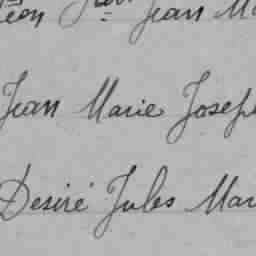 Jean M
Jean Marie Joseph
Desiré Jules Mar